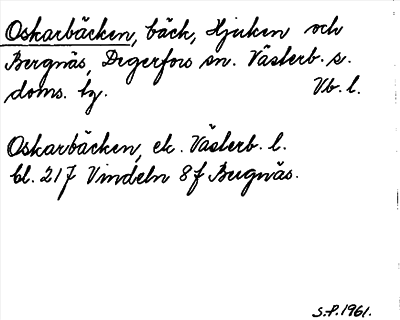 Oskarbäcken, bäck, Hjuken och
Bergnäs, Degerfors sn. Västerb. s.
doms. lg. Vb. l.
Oskarbäcken, ek. Västerb. l.
bl. 217 Vindeln 8f Bergnäs.
S.P. 1961.